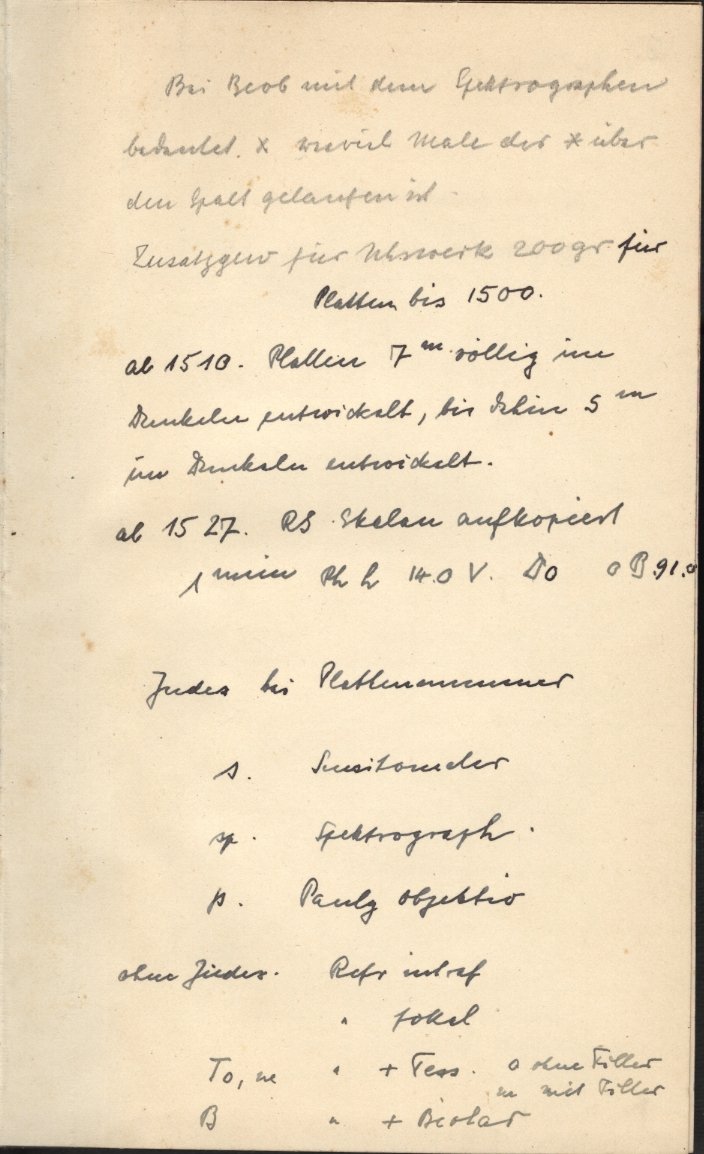 Bei Beob mit dem Spektrographen
bedeutet x wieviel Male der * über
den Spalt gelaufen ist.
Zusatzgew für Uhrwerk 200gr für
Platten bis 1500.
ab 1510. Platten 7m völlig im
Dunkeln entwickelt, bis dahin 5m
im Dunkeln entwickelt.
ab 1527. RS Skalen aufkopiert
1 min Ph L 14.0 V. Do o B 91.
Index bei Plattennummer
s. Sensitometer
sp. Spektrograph.
p. Pauly Objektiv
ohne Index. Refr intraf
" fokal
To, m " + Tess. o ohne Filter
m mit Filter
B " + Biotar